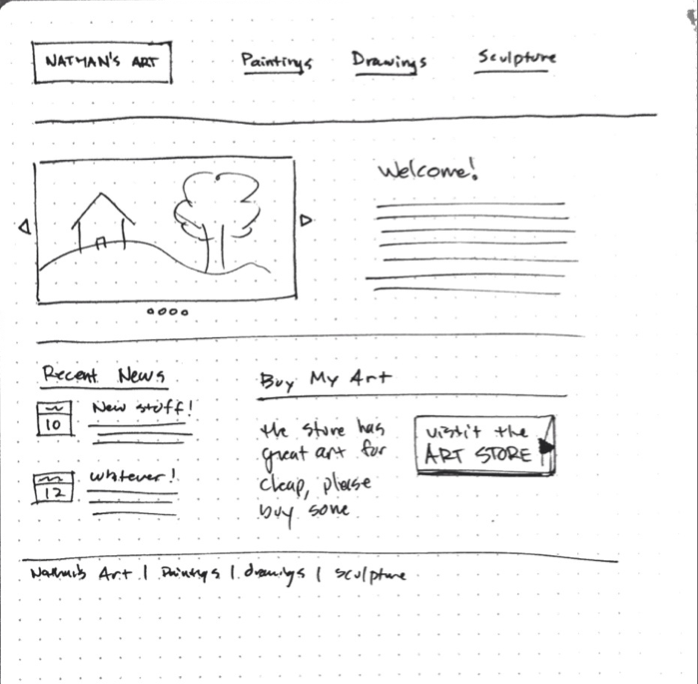 NATHAN'S ART
Paintings
Drawings
Sculpture
Welcome!
Recent News
10
New stuff!
12
Whatever!
Buy My Art
the store has
great art for
cheap, please
buy some
visit the
ART STORE
Nathan's Art | Paintings | drawings | sculpture